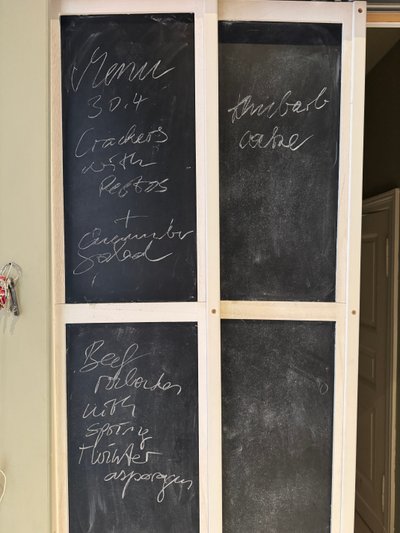 Menu
30.4
Crackers
with
Pestos
+
Cucumber
Salad
Beef
with
spring
asparagus
rhubarb
cake